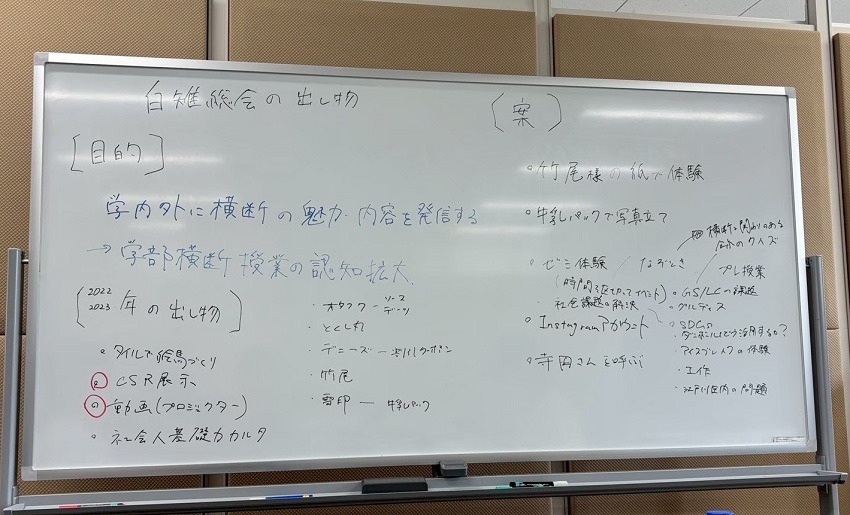 白雉総会の出し物
[目的]
学内外に横断の魅力・内容を発信する
→学部横断授業の認知拡大
[2022 2023 年の出し物]
・タイルで絵馬づくり
・CSR展示
・動画(プロジェクター)
・社会人基礎力カルタ
・オタフクーソース
デーツ
・としまれ
・デニーズー
・竹尾
・雪印ー牛乳パック
[案]
・竹尾様の紙で体験
・牛乳パックで写真立て
・ゼミ体験
(時間を区切ってイベント)
・社会課題の解決
・Instagramアカウント
・寺田さんを呼ぶ
なぞとき
横断に関わりのある
クイズ
プレ授業
・GS/LCの課題
・グルディス
・SDGs
ダンボールどう活用するか?
・アイスブレイクの体験
・工作
・江戸川区内の問題